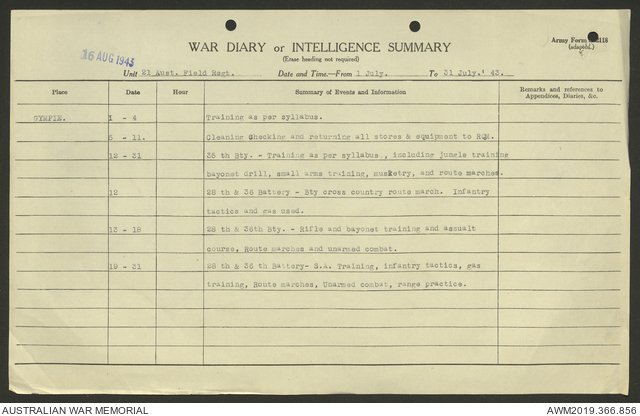 16 AUG 1943
WAR DIARY or INTELLIGENCE SUMMARY
(Erase heading not required)
Army Form
(adapted.)
Unit 21 Aust. Field Regt. Date and Time.—From 1 July. To 31 July.' 43.
Place Date Hour Summary of Events and Information Remarks and references to Appendices, Diaries, &c.
GYMPIE. 1 - 4 Training as per syllabus.
- 11. Cleaning Checking and returning all stores & equipment to
12 - 31 35 th Bty. - Training as per syllabus , including jungle training
bayonet drill, small arms training, musketry, and route marches.
12 28 th & 36 Battery - Bty cross country route march. Infantry
tactics and gas used.
13 - 18 28 th & 36th Bty. - Rifle and bayonet training and assualt
course, Route marches and unarmed combat.
19 - 31 28 th & 36 th Battery- S.A. Training, infantry tactics, gas
training, Route marches, Unarmed combat, range practice.
AUSTRALIAN WAR MEMORIAL AWM2019.366.856